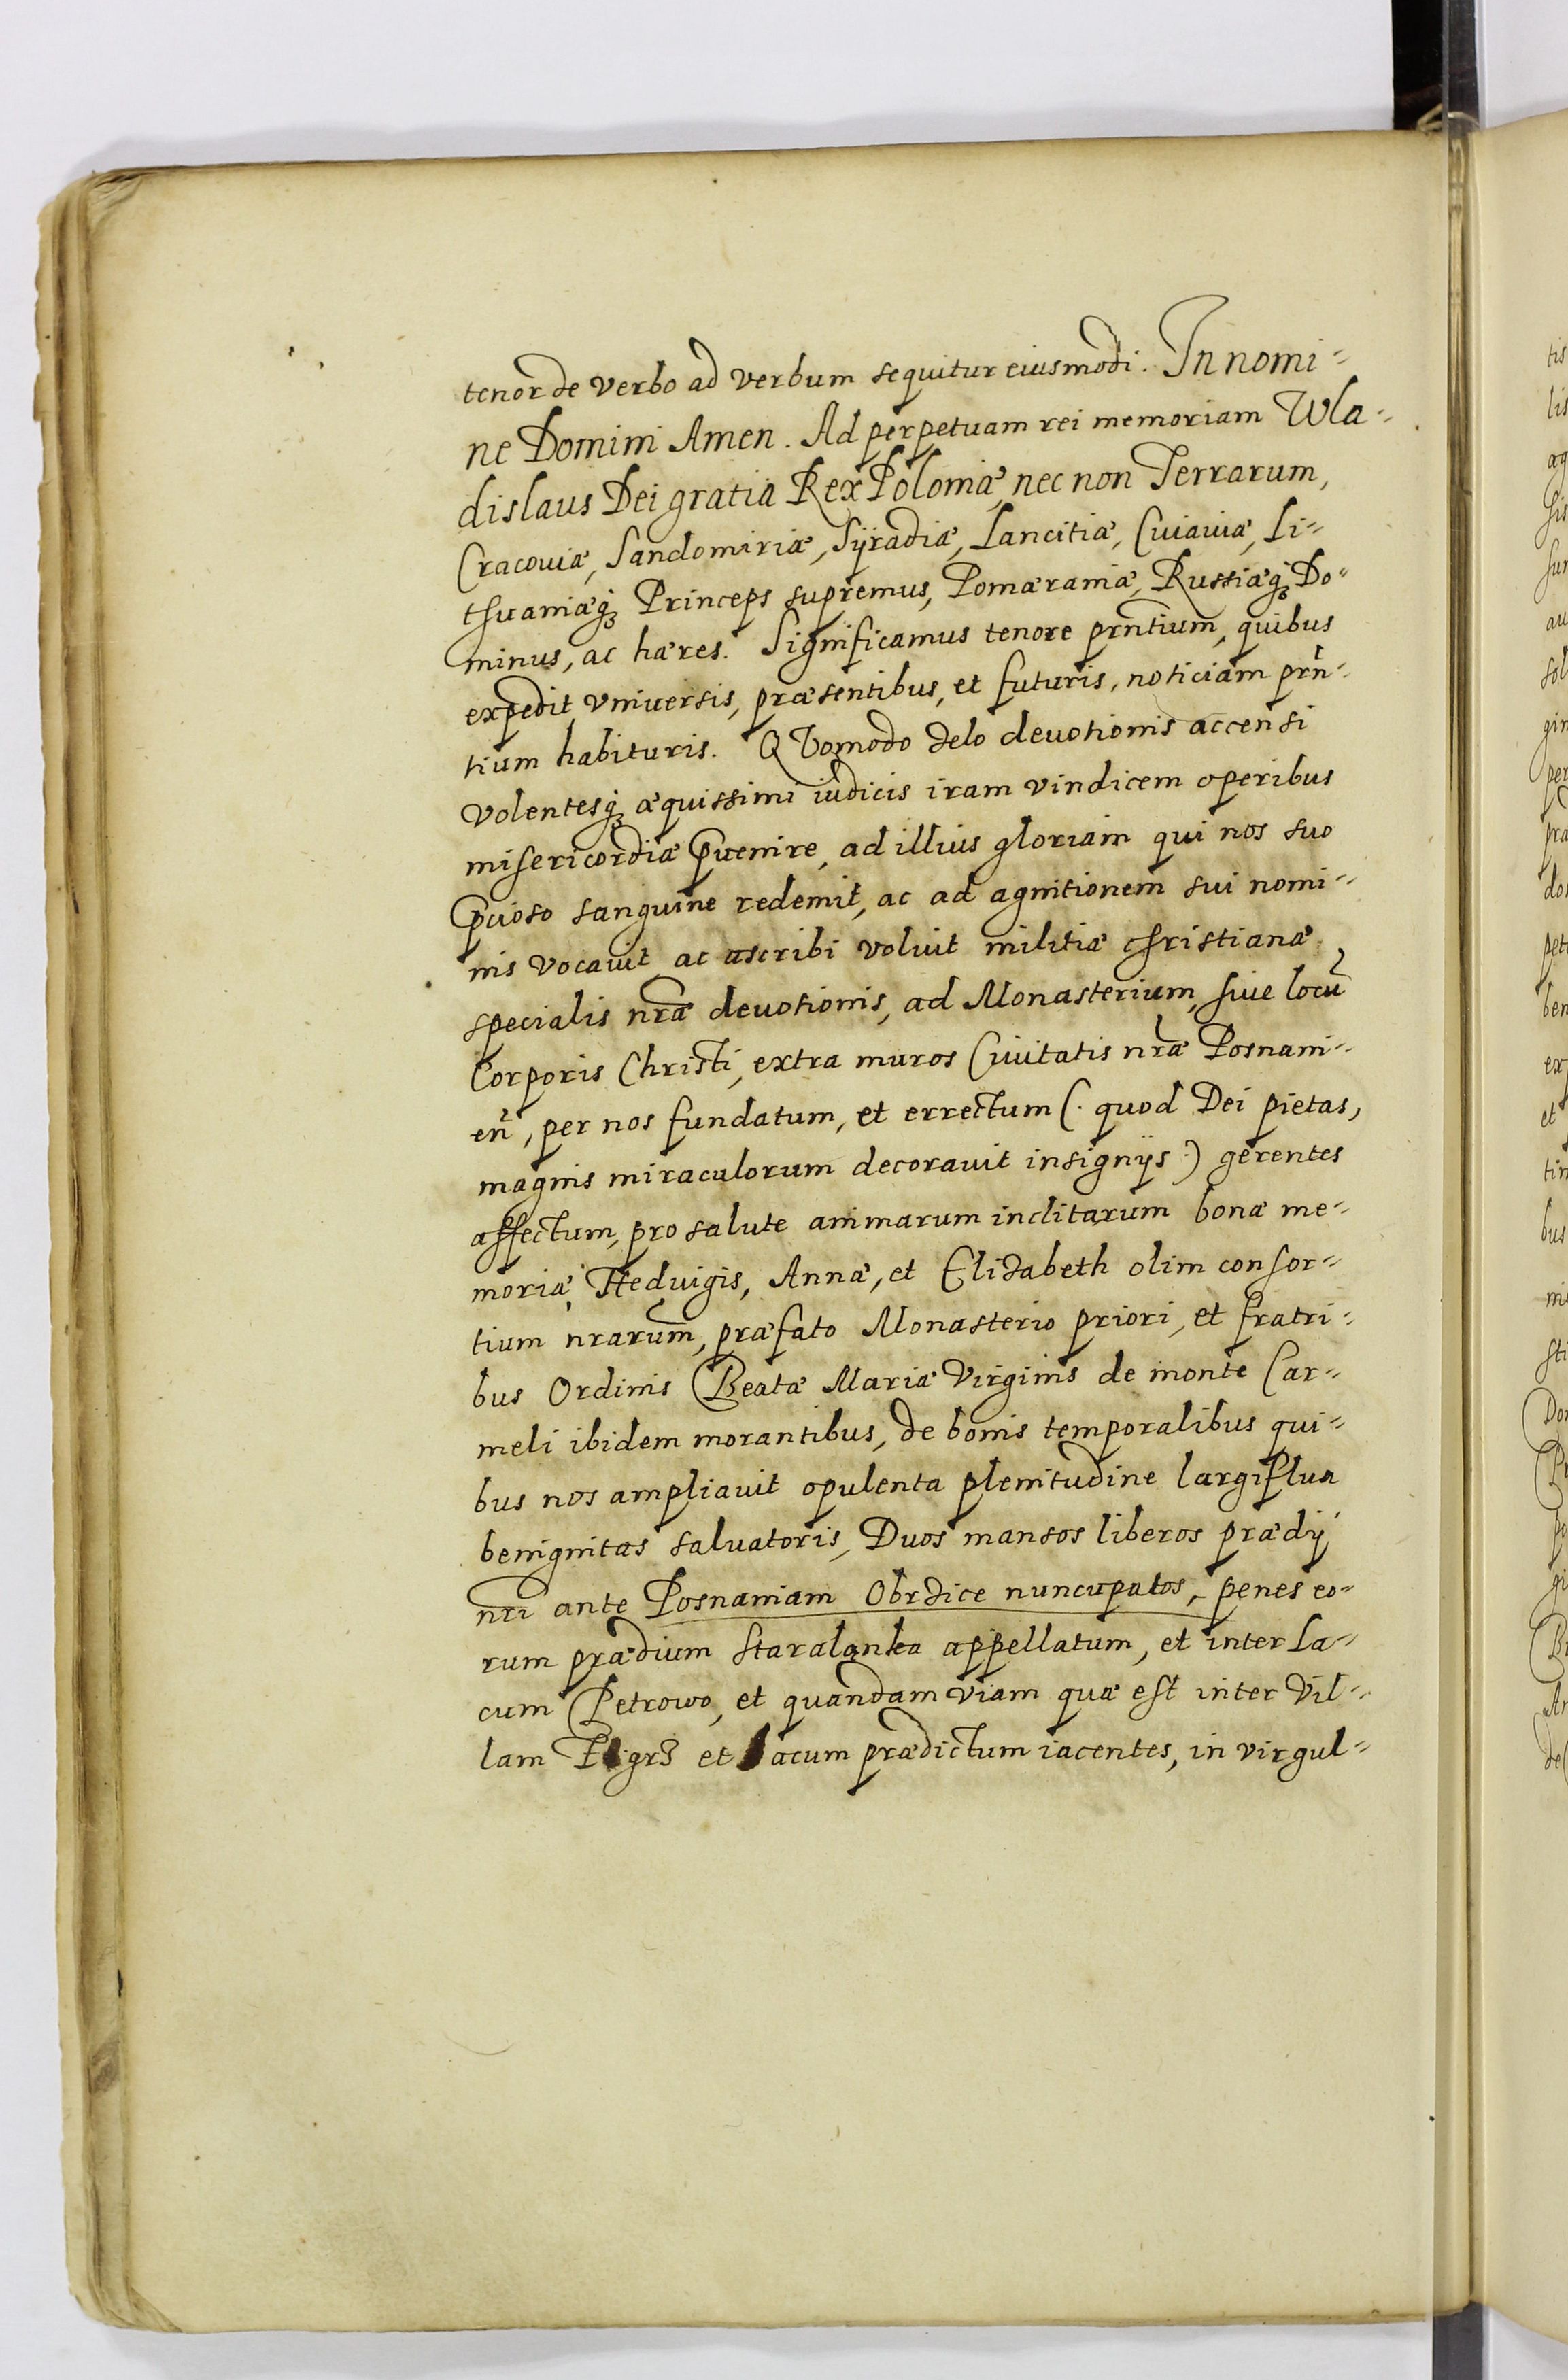 tenor de verbo ad verbum sequitur eiusmodi. In nomi=
ne Domini Amen. Ad perpetuam rei memoriam Wla=
dislaus Dei gratia Rex Poloniæ, nec non Terrarum,
Cracouiæ, Sandomiriæ, Syradiæ, Lancitiæ, Cuiauiæ, Li=
thuaniæq3 Princeps supremus, Pomæraniæ, Russiæq3 Do=
minus, ac hæres. Significamus tenore prñtium, quibus
expedit vniuersis, præsentibus, et futuris, noticiam prñ=
tium habituris. QVomodo zelo deuotionis accensi
volentesq3 æquissimi iudicis iram vindicem operibus
misericordiæ p̃uenire, ad illius gloriam qui nos suo
p̃cioso sanguine redemit, ac ad agnitionem sui nomi=
nis vocauit ac ascribi voluit militiæ christianæ
specialis nr̃æ deuotionis, ad Monasterium, siue locũ
Corporis Christi, extra muros Ciuitatis nr̃æ Posnani=
eñ, per nos fundatum, et errectum (. quod Dei pietas,
magnis miraculorum decorauit insignijs .) gerentes
affectum, pro salute animarum inclitarum bonæ me=
moriæ, Heduigis, Annæ, et Elizabeth olim consor=
tium nrarum, præfato Monasterio priori, et fratri=
bus Ordinis Beatæ Mariæ Virginis de monte Car=
meli ibidem morantibus, de bonis temporalibus qui=
bus nos ampliauit opulenta plenitudine largiflua
benignitas saluatoris, Duos mansos liberos prædij
nr̃i ante Posnaniam Obrzice nuncupatos, penes eo=
rum prædium staralanka appellatum, et inter La=
cum Petrowo, et quandam viam quæ est inter Vil=
lam et lacum prædictum iacentes, in virgul=